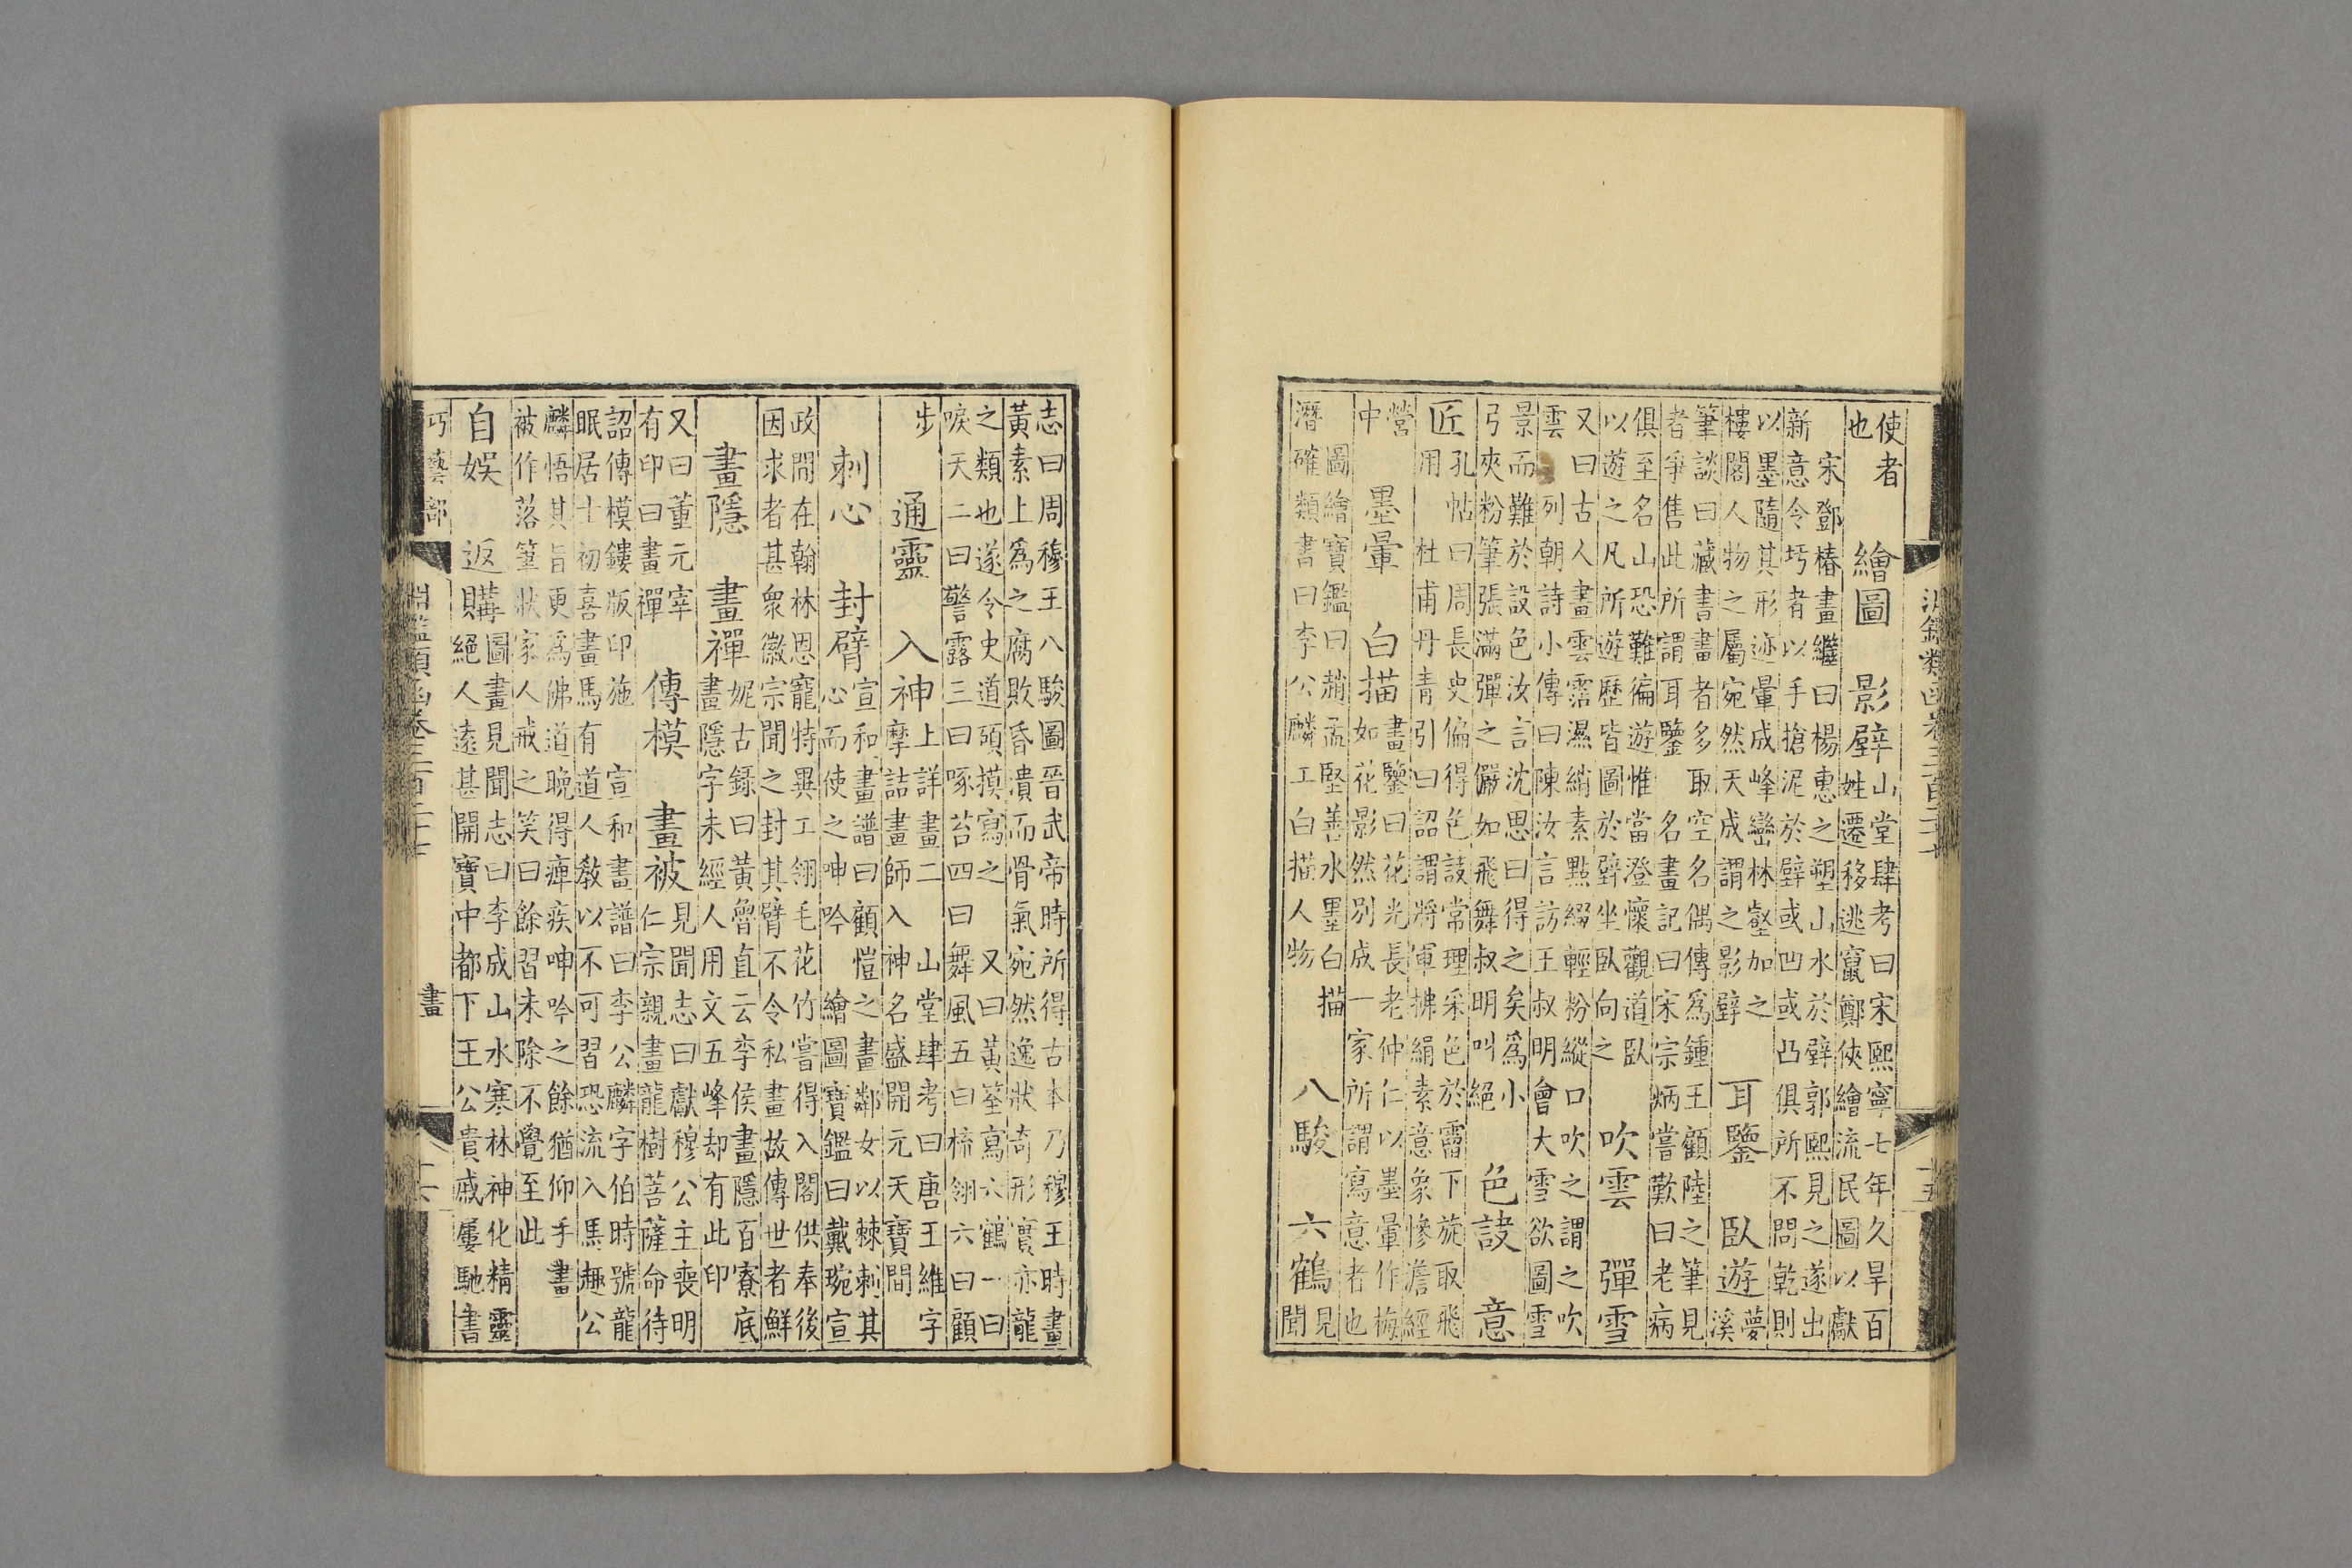 淵鑑類函卷三百二十七 十五
使者
也
繪圖 影壁
山堂肆考曰宋熙寧七年久旱百
姓遷移逃竄鄭俠繪流民圖以獻
宋鄧椿畫繼曰楊惠之塑山水於壁郭熙見之遂出
新意令圬者以手搶泥於壁或凹或凸俱所不問乾則
以墨隨其形迹暈成峰巒林壑加之
樓閣人物之屬宛然天成謂之影壁
耳鑒 臥遊
夢
溪
筆談曰藏書畫者多取空名偶傳爲鍾王顧陸之筆見
者爭售此所謂耳鑒 名畫記曰宋宗炳嘗歎曰老病
俱至名山恐難徧遊惟當澄懷觀道臥
以遊之凡所遊歷皆圖於壁坐臥向之
吹雲 彈雪
又曰古人畫雲霑濕綃素點綴輕粉縱口吹之謂之吹
雲 列朝詩小傳曰陳汝言訪王叔明會大雪欲圖雪
景而難於設色汝言沈思曰得之矣爲小
弓夾粉筆張滿彈之儼如飛舞叔明叫絕
色詖 意
匠
孔帖曰周長史偏得色詖常理采色於霤下旋取飛
用 杜甫丹青引曰詔謂將軍拂絹素意象慘澹經
營
中
墨暈 白描
畫鑒曰花光長老仲仁以墨暈作梅
如花影然別成一家所謂寫意者也
圖繪寶鑑曰趙孟堅善水墨白描
潛確類書曰李公麟工白描人物
八駿 六鶴
見
聞
志曰周穆王八駿圖晉武帝時所得古本乃穆王時畫
黃素上爲之腐敗昏潰而骨氣宛然逸狀奇形實亦龍
之類也遂令史道碩摸寫之 又曰黃筌寫六鶴一曰
唳天二曰警露三曰啄苔四曰舞風五曰梳翎六曰顧
步
通靈 入神
上詳畫二 山堂肆考曰唐王維字
摩詰畫師入神名盛開元天寶間
刺心 封臂
宣和畫譜曰顧愷之畫鄰女以棘刺其
心而使之呻吟 繪圖寶鑑曰戴琬宣
政間在翰林恩寵特異工翎毛花竹嘗得入閣供奉後
因求者甚衆徽宗聞之封其臂不令私畫故傳世者鮮
畫隱 畫禪
妮古錄曰黃魯直云李侯畫隱百寮底
畫隱字未經人用文五峰却有此印
又曰董元宰
有印曰畫禪
傳模 畫被
見聞志曰獻穆公主喪明
仁宗親畫龍樹菩薩命待
詔傳模鏤版印施 宣和畫譜曰李公麟字伯時號龍
眠居士初喜畫馬有道人教以不可習恐流入馬趣公
麟悟其旨更爲佛道晚得痺疾呻吟之餘猶仰手畫
被作落筆狀家人戒之笑曰餘習未除不覺至此
自娛 返購
圖畫見聞志曰李成山水寒林神化精靈
絕人遠甚開寶中都下王公貴戚屢馳書
巧藝部 淵鑑類函卷三百二十七 畫 十六